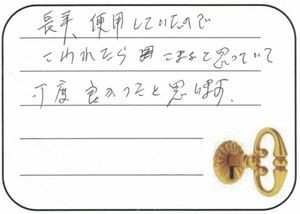 長年、使用していたので
こわれたら こまると思っていて
丁度良かったと思います。